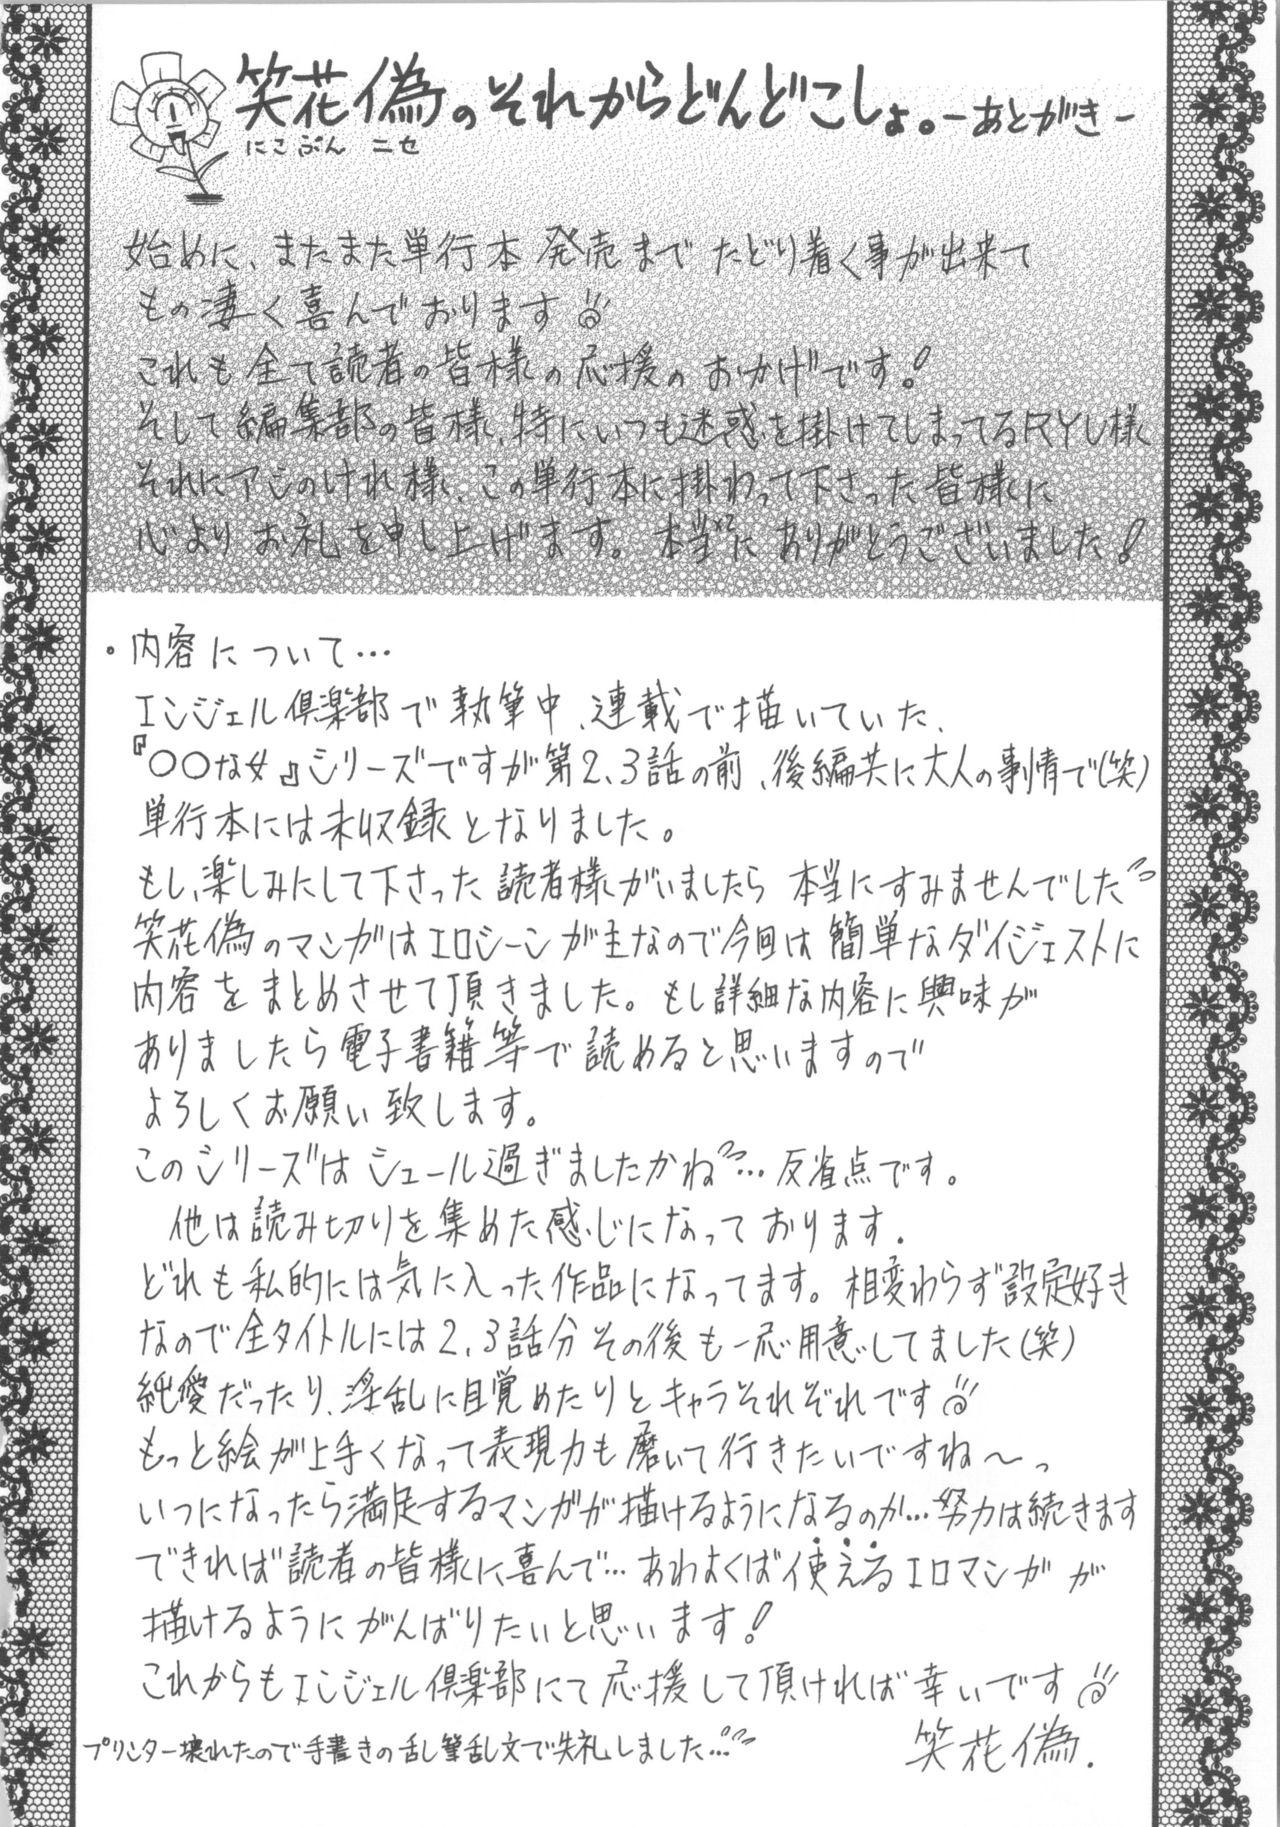 笑花偽のそれからどんどこしょ。-あとがき-
にこぷん ニセ
始めに、またまた単行本発売までたどり着く事が出来て
もの凄く喜んでおります
これも全て読者の皆様の応援のおかげです!
そして編集部の皆様、特にいつも迷惑を掛けてしまってるRYU様
それにアシのけれ様、この単行本に掛わって下さった皆様に
心よりお礼を申し上げます。本当にありがとうございました!
・内容について…
エンジェル倶楽部で執筆中、連載で描いていた、
『〇〇な女』シリーズですが第2、3話の前、後編共に大人の事情で(笑)
単行本には未収録となりました。
もし、楽しみにして下さった読者様がいましたら本当にすみませんでした
笑花偽のマンガはエロシーンが主なので今回は簡単なダイジェストに
内容をまとめさせて頂きました。もし詳細な内容に興味が
ありましたら電子書籍等で読めると思いますので
よろしくお願い致します。
このシリーズはシュール過ぎましたかね…反省点です。
他は読み切りを集めた感じになっております.
どれも私的には気に入った作品になってます。相変わらず設定好き
なので全タイトルには2、3話分その後も一応用意してました(笑)
純愛だったり、淫乱に目覚めたりとキャラそれぞれです
もっと絵が上手くなって表現力も磨いて行きたいですね〜っ
いつになったら満足するマンガが描けるようになるのか…努力は続きます
できれば読者の皆様に喜んで…あわよくば使えるエロマンガが
描けるようにがんばりたいと思います!
これからもエンジェル倶楽部にて応援して頂ければ幸いです
笑花偽.
プリンター壊れたので手書きの乱筆乱文で失礼しました…